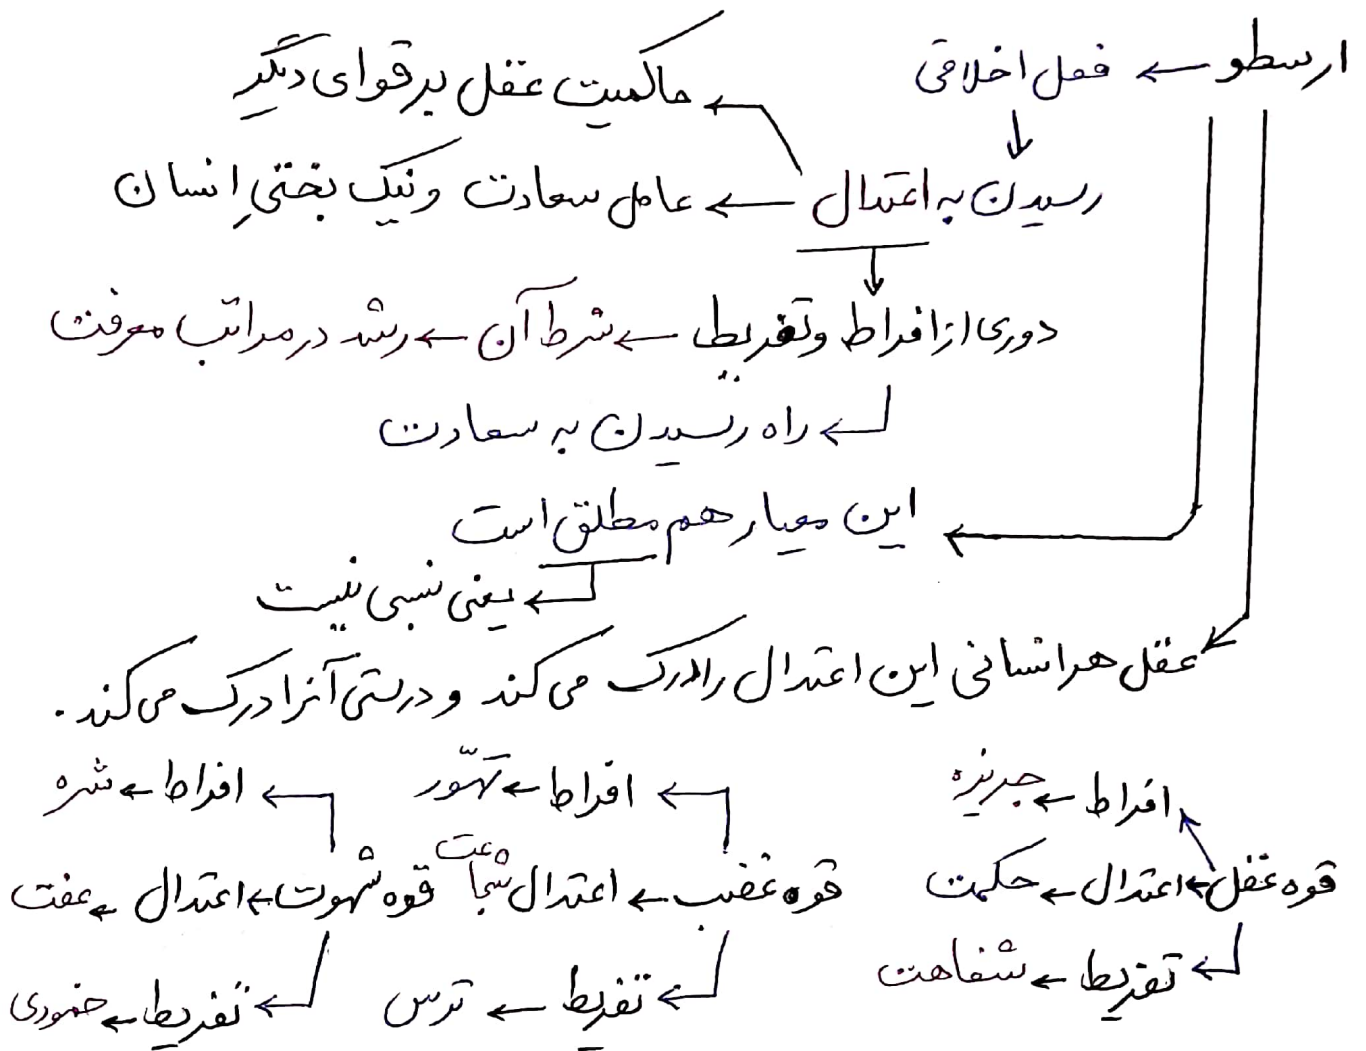 ارسطو ← فعل اخلاقی
حاکمیت عقل بر قوای دیگر
رسیدن به اعتدال ← عامل سعادت و نیک بختیِ انسان
دوری از افراط و تفریط ← شرط آن ← رشد در مراتب معرفت
راه رسیدن به سعادت
این معیار هم مطلق است
یعنی نسبی نیست
عقل هر انسانی این اعتدال را درک می‌کند و درستی آنرا درک می‌کند.
افراط ← جربزه
قوه عقل ← اعتدال ← حکمت
تفریط ← سفاهت
افراط ← تهّور
قوه غضب ← اعتدال شجاعت
تفریط ← ترس
افراط ← شره
قوه شهوت ← اعتدال ← عفت
تفریط ← خمودی